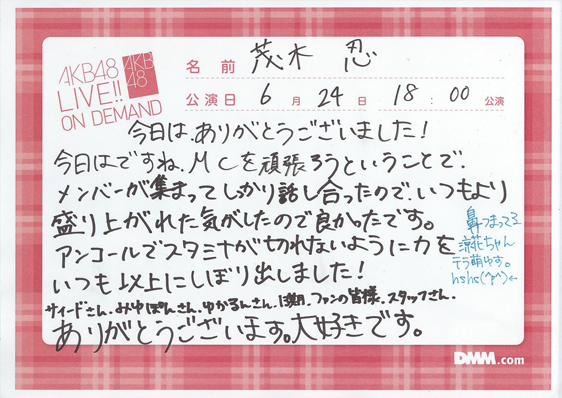 AKB48
LIVE!!
ON DEMAND
AKB
48
名前 茂木 忍
公演日 6月24日 18:00 公演
今日は、ありがとうございました!
今日はですね、MCを頑張ろうということで、
メンバーが集まってしっかり話し合ったので、いつもより
盛り上がれた気がしたので良かったです。
アンコールでスタミナが切れないように力を
いつも以上にしぼり出しました!
サイードさん、みゆぽんさん、ゆかるんさん、13期、ファンの皆様、スタッフさん、
ありがとうございます。大好きです。
鼻つまってる
涼花ちゃん
テラ萌ゆす。
hshs(^p^)←
DMM.com